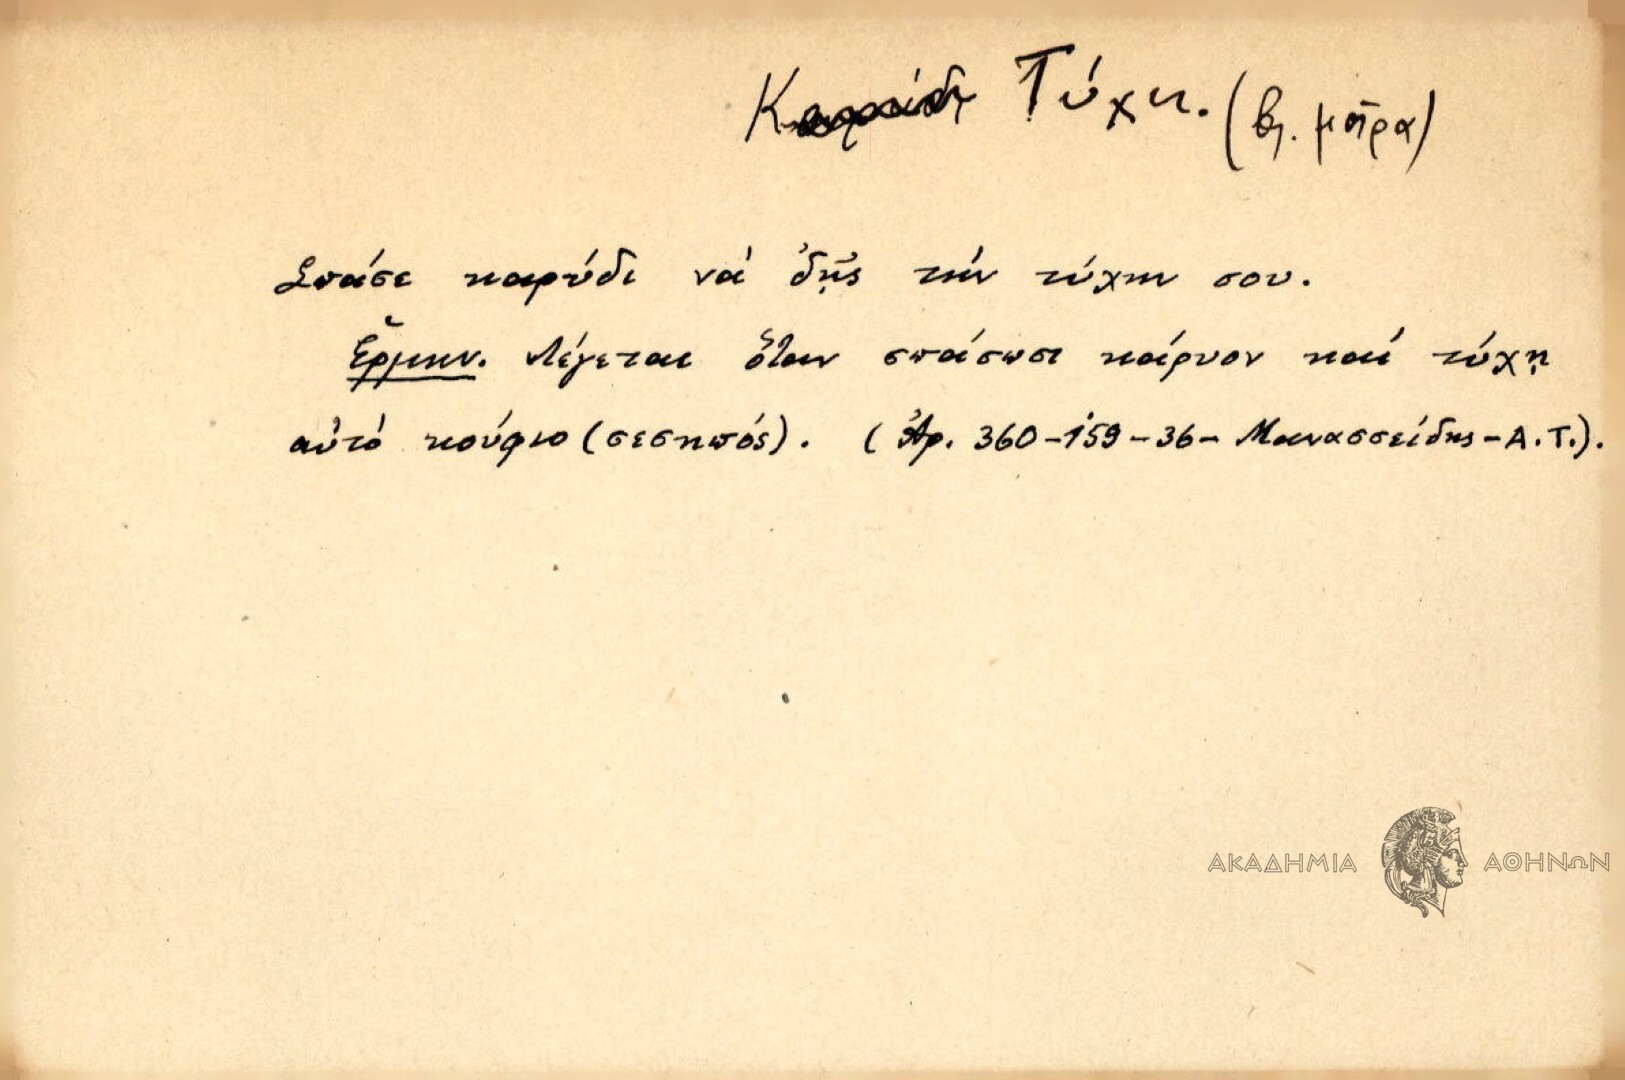 Τύχη. (βλ. μοῖρα)
Σπάσε καρύδι νά ἰδῇς τήν τύχην σου.
Ἑρμην. Λέγεται ὅταν σπάσωσι κάρυον καί τύχῃ
αὐτό κούφιο (σεσηπός). (Ἀρ. 360-159-36- Μανασσείδης-Α.Τ.).
ΑΚΑΔΗΜΙΑ ΑΘΗΝΩΝ